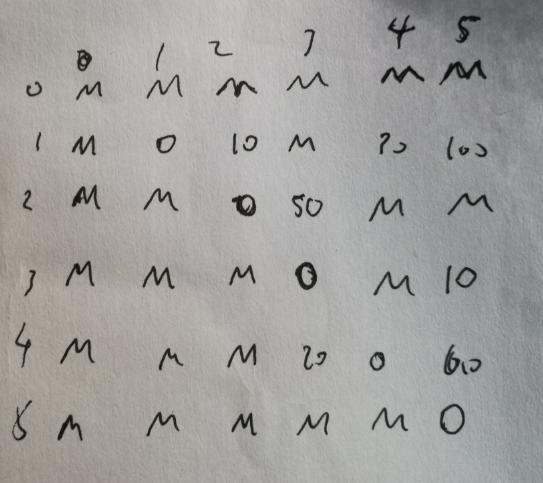 0 1 2 3 4 5
0 M M M M M M
1 M 0 10 M 30 100
2 M M 0 50 M M
3 M M M 0 M 10
4 M M M 20 0 60
5 M M M M M 0